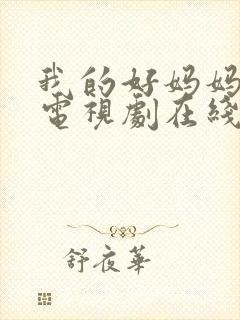 我的好妈妈
電視劇在綫
舒夜華